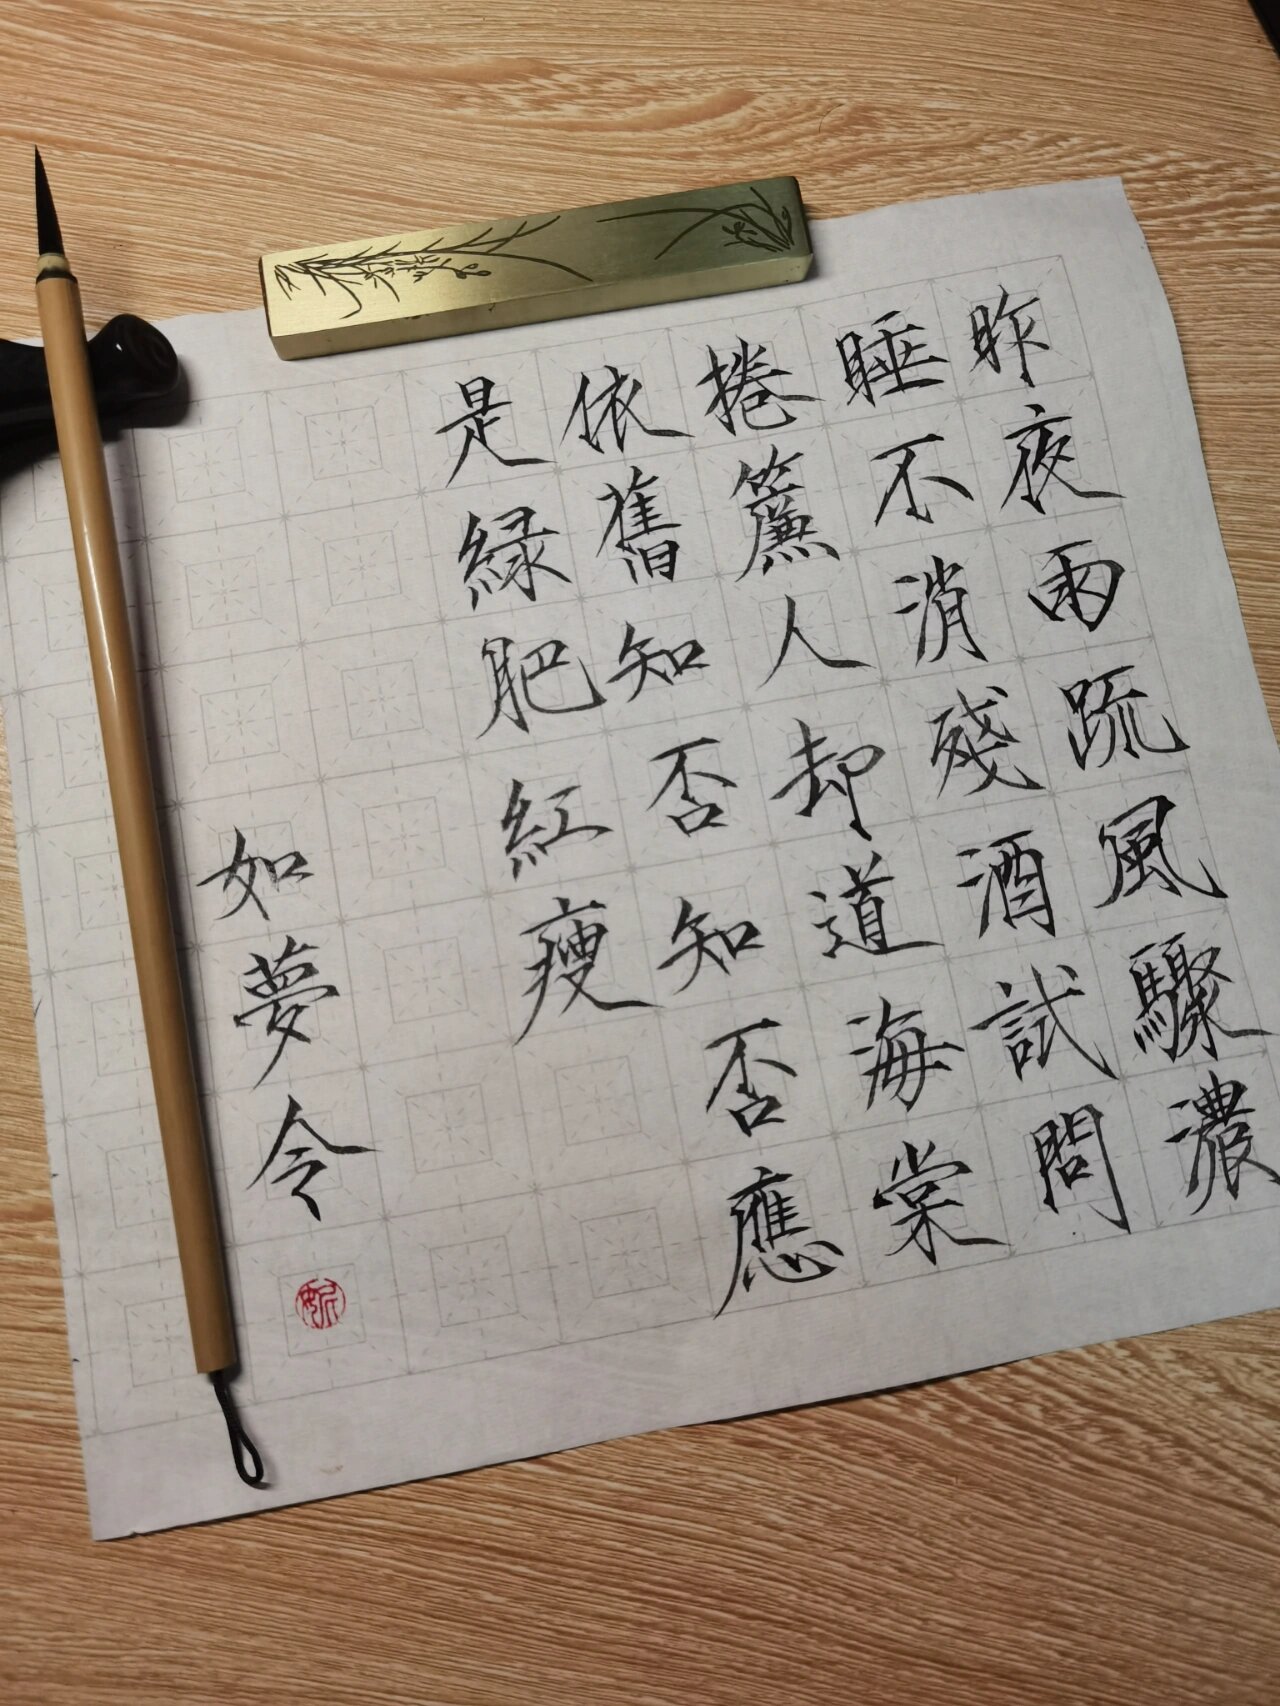 昨夜雨疏風驟濃
睡不消殘酒試問
捲簾人却道海棠
依舊知否知否應
是緑肥紅瘦
如夢令